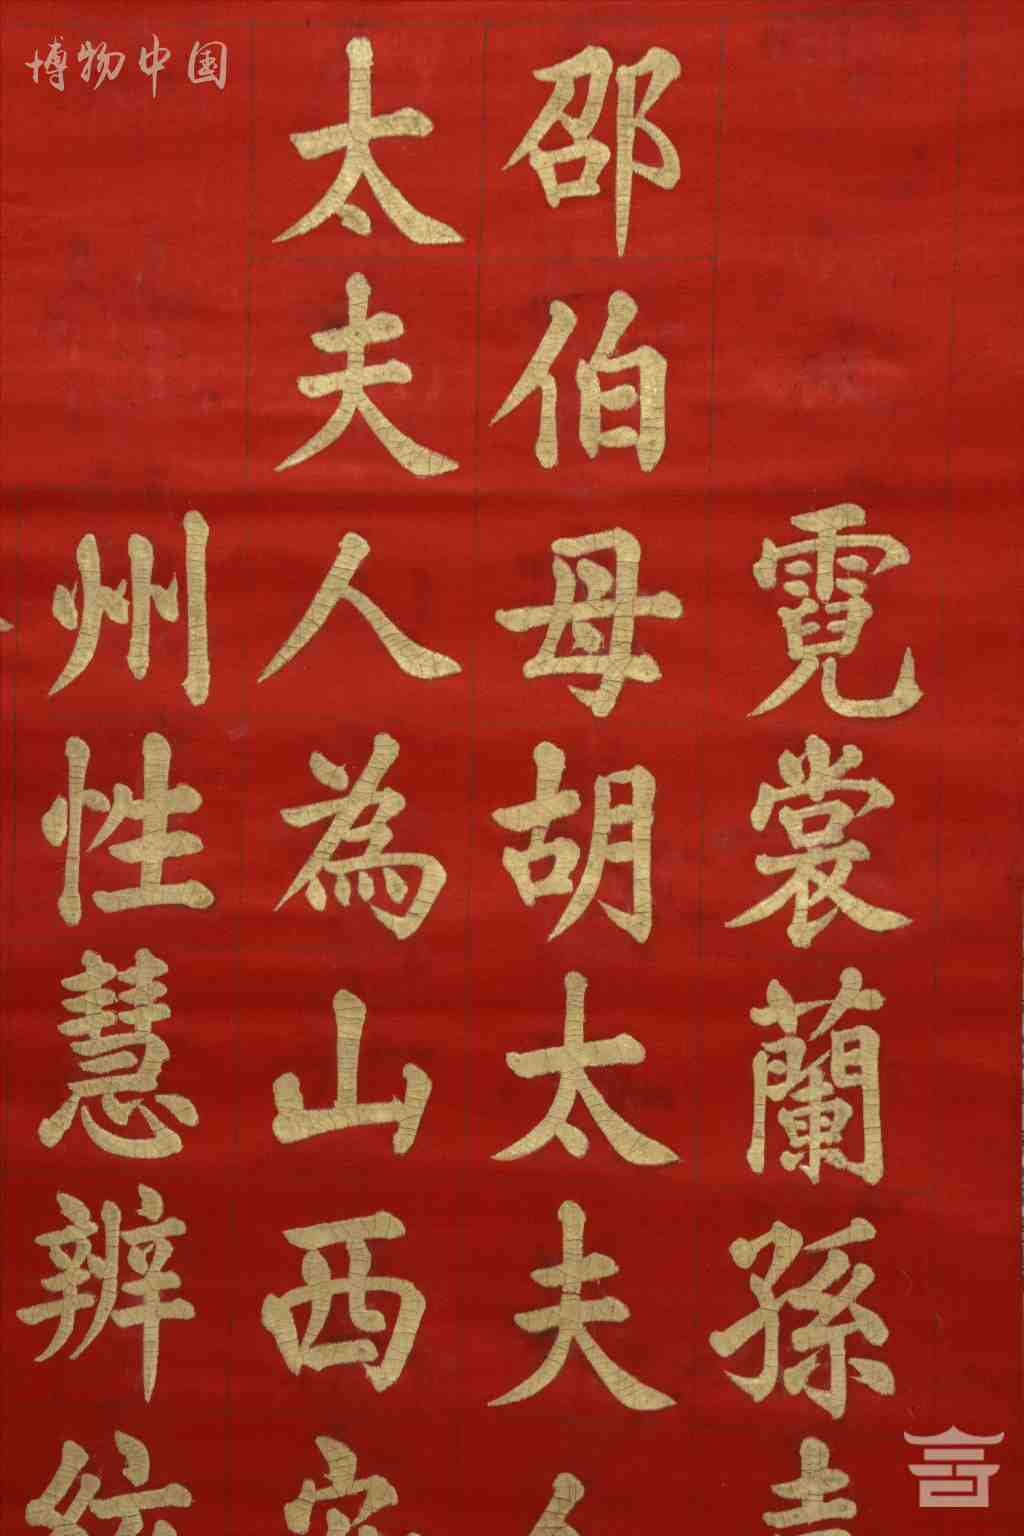 博物中国
霓裳蘭孫
邵伯母胡太夫人
太夫人為山西
州性慧辨